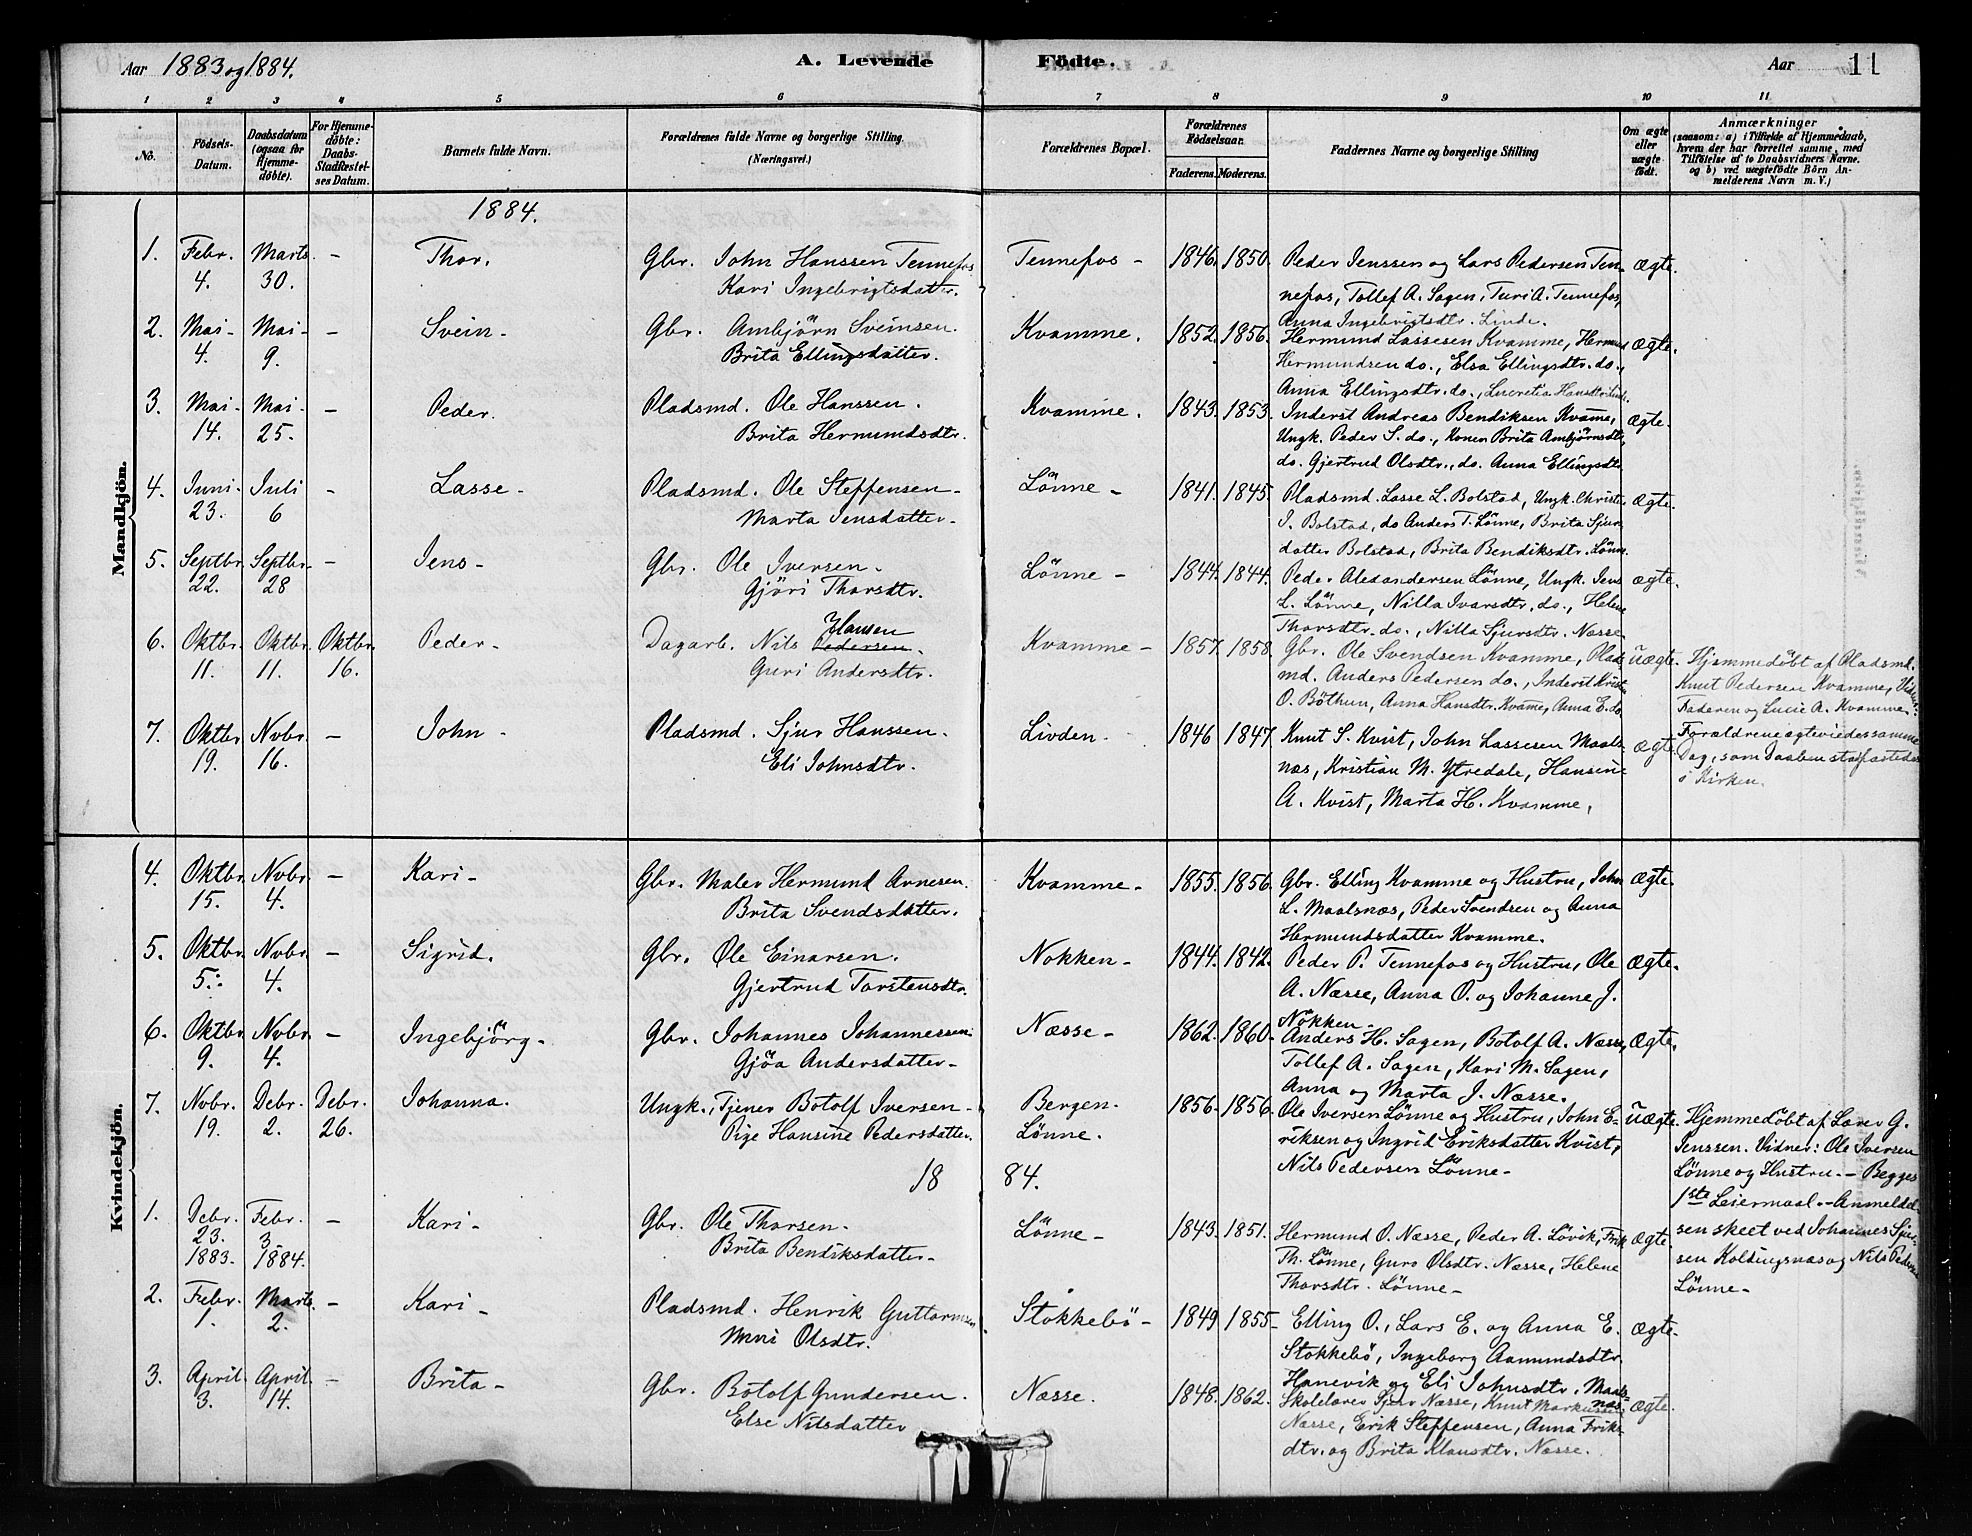 Aar 1883 og 1884.
A. Levende Födte.
Aar 11
1 2 3 4 5 6 7 8 9 10 11
No.
Födsels-Datum.
Daabsdatum (ogsaa for Hjemme-döbte).
For Hjemme-döbte: Daabs-Stadfæstel-ses Datum.
Barnets fulde Navn.
Forældrenes fulde Navne og borgerlige Stilling. (Næringsvei.)
Forældrenes Bopæl.
Forældrenes Födselsaar.
Faderens. Moderens.
Faddernes Navne og borgerlige Stilling
Om ægte eller uægte födt.
Anmærkninger
(saasom: a) i Tilfælde af Hjemmedaab, hvem der har forrettet samme, med Tilföielse af to Daabsvidners Navne. og b) ved uægtefödte Börn An-melderens Navn m. V.)
Mandkjön.
1884.
1. Febr. 4. Marts 30. – Thor. Gbr. John Hanssen Tennefos Tennefos – 1846. 1850. Peder Jenssen og Lars Pedersen Ten- Ægte.
Kari Ingebrigtsdatter. nefos, Tollef A. Sagen, Turi A. Tennefos,
Anna Ingebrigtsdtr. Linde.
2. Mai 4. Mai 9. – Svein – Gbr. Ambjörn Sveinsen. Kvamme. 1852. 1856. Hermund Lassesen Kvamme, Hermund Ægte.
Brita Ellingsdatter. Hermundsen do., Elsa Ellingsdtr. do.,
Anna Ellingsdtr. do., Lucretia Hansdtr.
3. Mai 14. Mai 25. – Peder. Pladsmd. Ole Hanssen. Kvamme. 1843. 1853. Inderst Andreas Bendiksen Kvame, Ægte.
Brita Hermundsdtr. Ungk. Peder S. do., Konen Brita Ambjörnsdtr.
do. Gjertrud Olsdtr., do. Anna Ellingsdtr.
4. Juni 23. Juli 6 – Lasse – Pladsmd. Ole Steffensen – Lönne – 1841. 1845. Pladsmd. Lasse L. Bolstad, Ungk. Christe Ægte.
Marta Jensdatter – I. Bolstad, do Anders T. Lönne, Brita Sjur
datter Bolstad, Brita Bendiksdtr. Lönne.
5. Septbr. 22. Septbr. 28 – Jens – Gbr. Ole Iversen – Lönne – 1844. 1844. Peder Alexandersen Lönne, Ungk. Jens Ægte.
Gjöri Thorsdtr. L. Lönne, Nilla Ivarsdtr. do., Helene
Thorsdtr. do., Nilla Sjursdtr. Næsse
6. Oktbr. 11. Oktbr. 11. Oktbr. 16. Peder – Dagarb. Nils Pedersen Hansen Kvamme – 1857. 1858. Gbr. Ole Svendsen Kvamme, Plads uægte.
Guri Andersdtr. md. Anders Pedersen do., Inderst Kristen
O. Böthun, Anna Hansdtr. Kvame, Anna E. do.
Hjemmedöbt af Pladsmd.
Knut Pedersen Kvamme, Vidner:
Faderen og Lucie A. Kvamme.
Forældrene ægteviedes samme
Dag, som Daaben stadfæstedes
i Kirken.
7. Oktbr. 19. Novbr. 16. – John – Pladsmd. Sjur Hanssen. Livden. 1846 1847. Knut S. Kvist, John Lassesen Maals- Ægte.
Eli Johnsdtr. næs, Kristian M. Ytredale, Hansine
A. Kvist, Marta H. Kvamme.
Kvindekjön.
4. Oktbr. 15. Novbr. 4. – Kari – Gbr. Maler Hermund Arnesen. Kvamme – 1855. 1856. Gbr. Elling Kvamme og Hustru, John Ægte.
Brita Svendsdatter. L. Maalsnæs, Peder Svendsen og Anna
Hermundsdatter Kvamme.
5. Oktbr. 5. Novbr. 4. – Sigrid. Gbr. Ole Einarsen. Nokken – 1844. 1842. Peder P. Tennefos og Hustru, Ole Ægte.
Gjertrud Torstensdtr. A. Næsse, Anna O. og Johanne J.
Nökken –
6. Oktbr. 9. Novbr. 4. – Ingebjörg – Gbr. Johannes Johannessen Næsse – 1862. 1860. Anders H. Sagen, Botolf A. Næsse, Ægte.
Gjöa Andersdatter – Tollef A. Sagen, Kari M. Sagen,
Anna og Marta J. Næsse.
7. Novbr. 19. Debr. 2. Debr. 26. Johanna. Ungk., Tjener Botolf Iversen – Bergen. 1856. 1856. Ole Iversen Lönne og Hustru, John E- uægte.
Pige Hansine Pedersdatter. Lönne. riksen og Ingrid Eriksdatter Kvist,
Nils Pedersen Lönne –
Hjemmedöbt af Lærer G.
Jenssen. Vidner: Ole Iversen
Lönne og Hustru. – Begges
1ste Leiermaal. – Anmeldel-
sen skeet ved Johannes Sjur-
sen Kolsingsnæs og Nils Pedersen
Lönne –
1884.
1. Debr. 23. 1883. Febr. 3. 1884. – Kari – Gbr. Ole Thorsen – Lönne – 1843. 1851. Hermund O. Næsse, Peder A. Lövik, Erik Ægte.
Brita Bendiksdatter – Th. Lönne, Guro Olsdtr. Næsse, Helene
Thorsdtr. Lönne –
2. Febr. 1. Marts 2. – Kari – Pladsmd. Henrik Guttormsen Stokkebö – 1849 1855 – Elling O., Lars E. og Anna E. Ægte –
Olsdtr. Stokkebö, Ingeborg Aamundsdtr.
Hanevik og Eli Johnsdtr. Maals-
næs.
3. April 3. April 14. – Brita – Gbr. Botolf Gundersen. Næsse. 1848. 1862. Skolelærer Sjur Næsse, Knut Markussen Ægte.
Else Nilsdatter Næsse, Erik Steffensen, Anna Eriks
dtr. og Brita Klausdtr. Næsse.